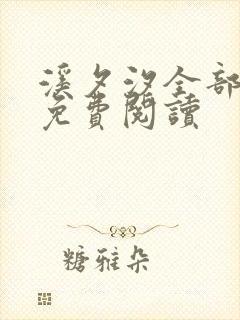 溪夕汐全部
免費閱讀
糖雅朵